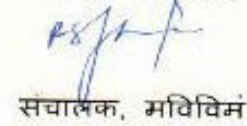 संचालक, मविविमं